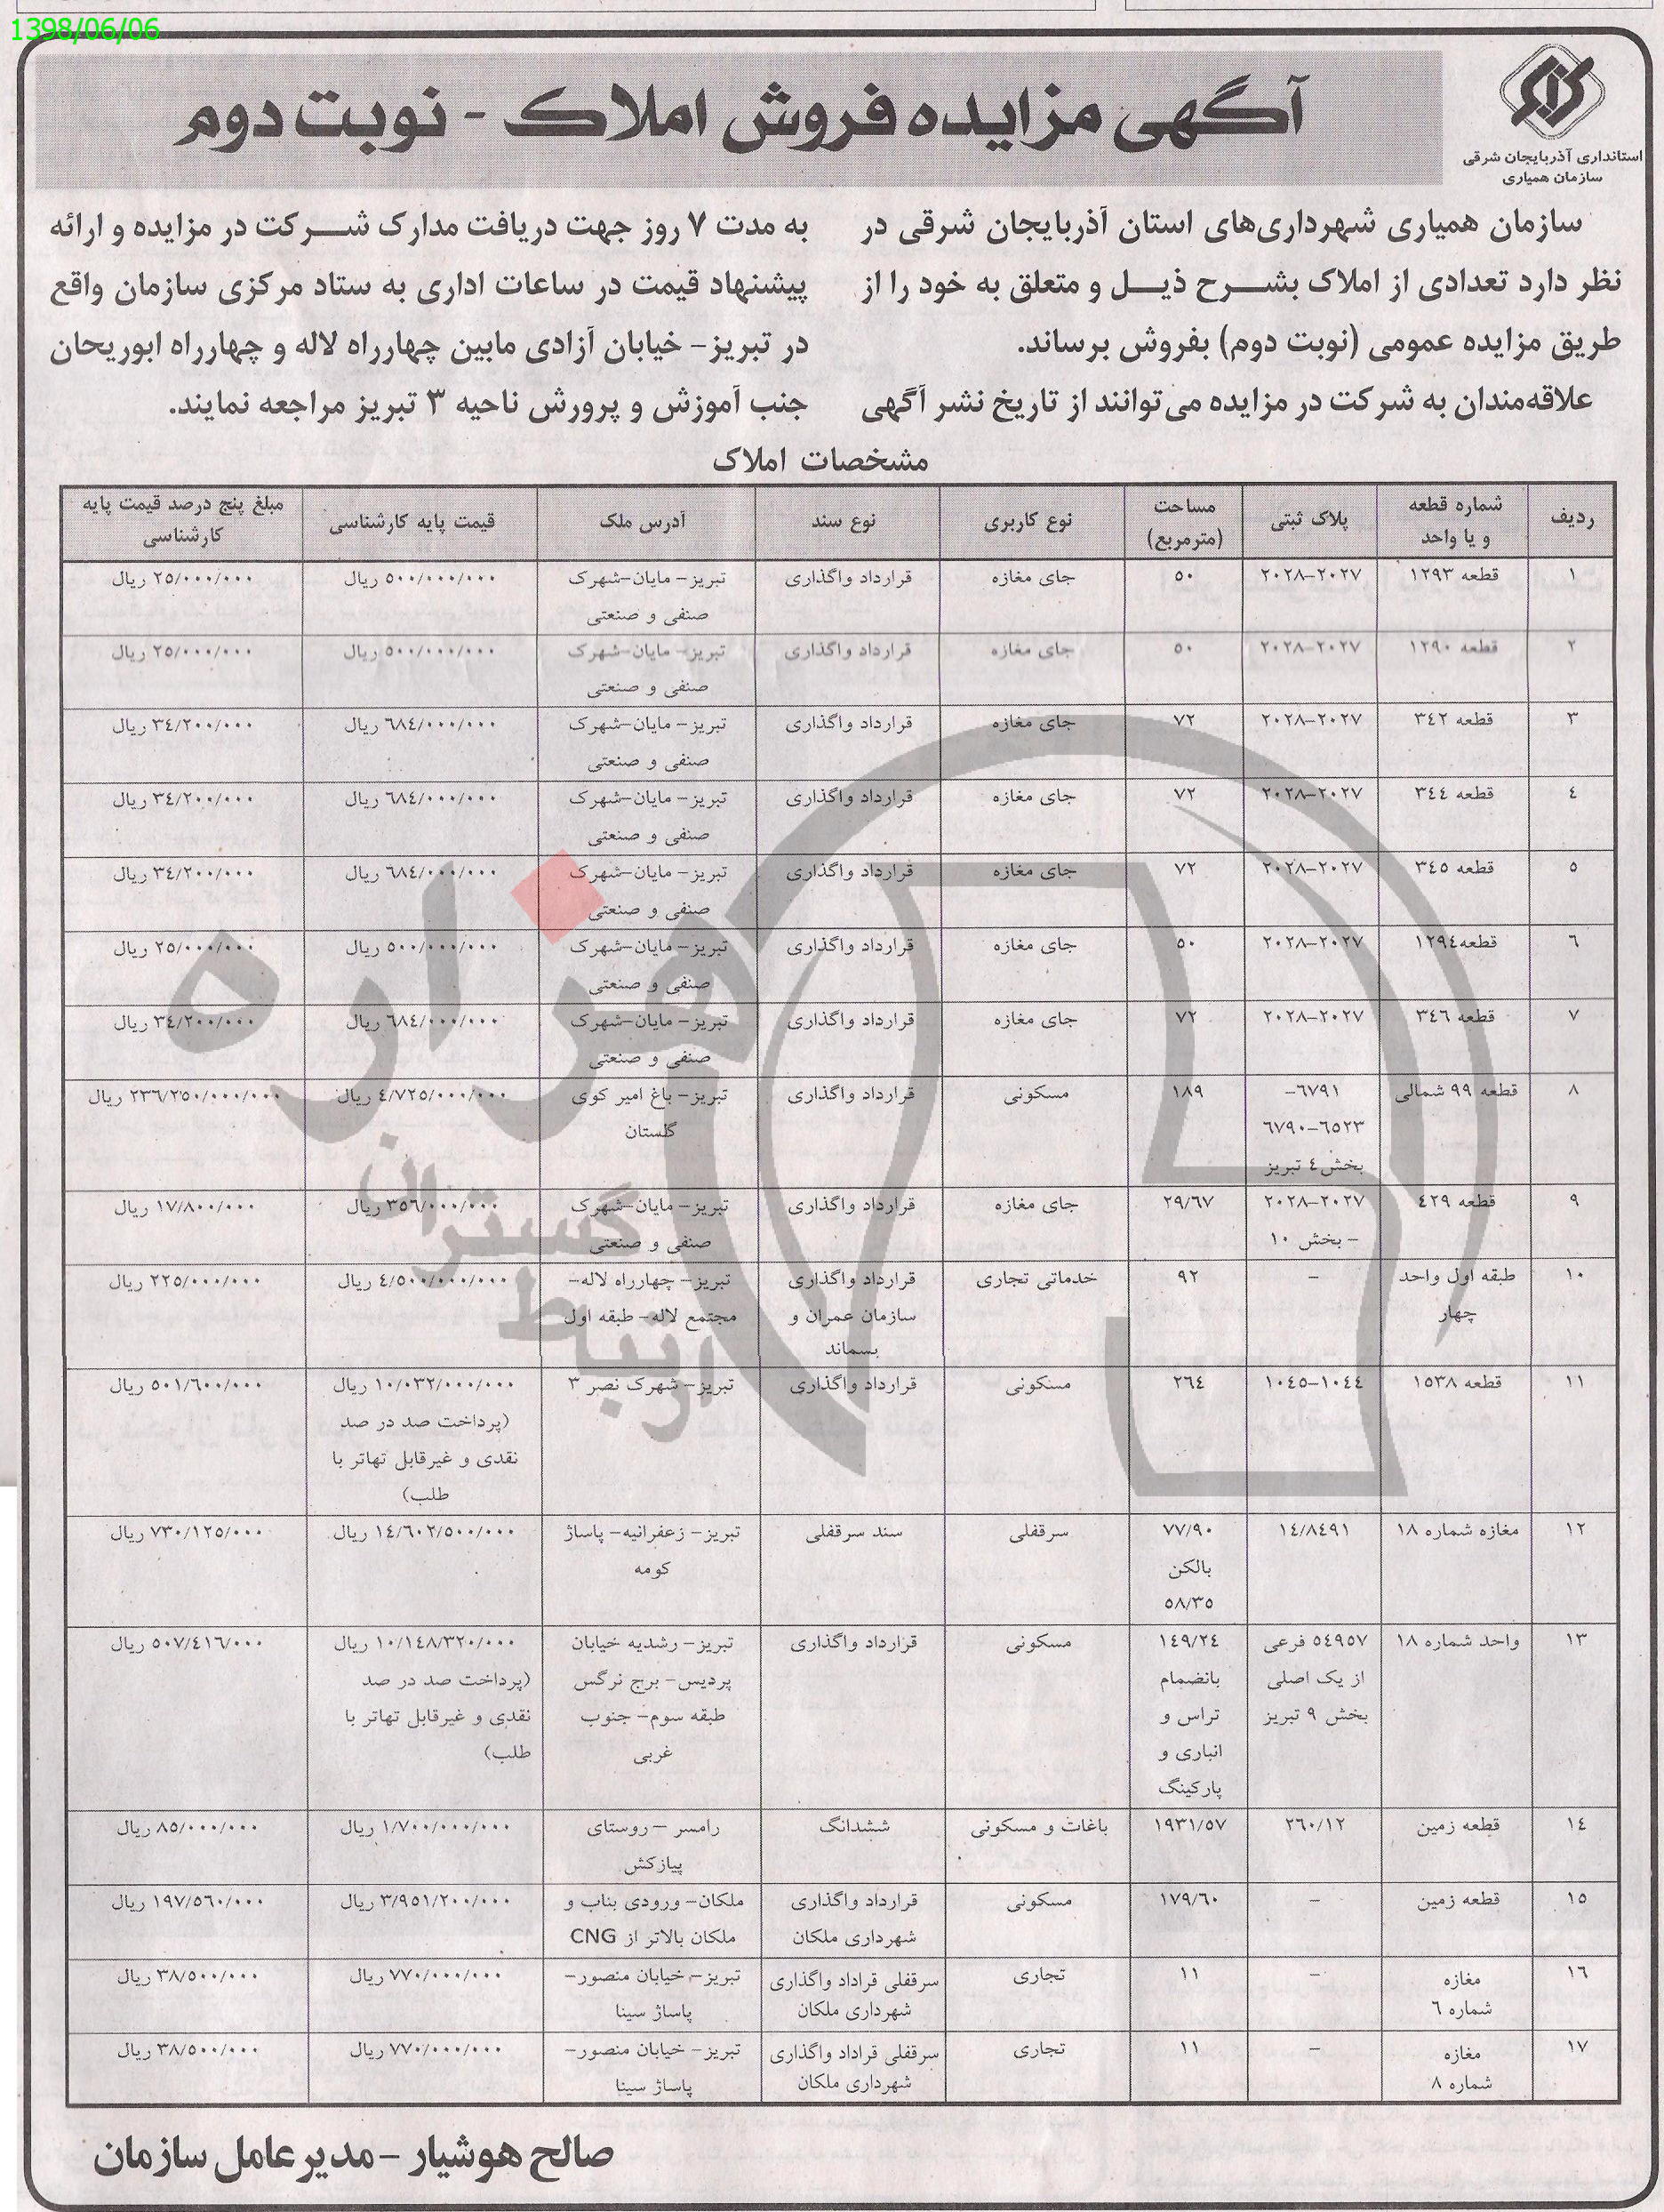 1398/06/06
استانداری آذربایجان شرقی
سازمان همیاری
آگهی مزایده فروش املاک - نوبت دوم
سازمان همیاری شهرداری‌های استان آذربایجان شرقی در
نظر دارد تعدادی از املاک بشرح ذیل و متعلق به خود را از
طریق مزایده عمومی (نوبت دوم) بفروش برساند.
علاقه‌مندان به شرکت در مزایده می‌توانند از تاریخ نشر آگهی
به مدت ۷ روز جهت دریافت مدارک شرکت در مزایده و ارائه
پیشنهاد قیمت در ساعات اداری به ستاد مرکزی سازمان واقع
در تبریز- خیابان آزادی مابین چهارراه لاله و چهارراه ابوریحان
جنب آموزش و پرورش ناحیه ۳ تبریز مراجعه نمایند.
مشخصات املاک
ردیف | شماره قطعه و یا واحد | پلاک ثبتی | مساحت (مترمربع) | نوع کاربری | نوع سند | آدرس ملک | قیمت پایه کارشناسی | مبلغ پنج درصد قیمت پایه کارشناسی
۱ | قطعه ۱۲۹۳ | ۲۰۲۷-۲۰۲۸ | ۵۰ | جای مغازه | قرارداد واگذاری | تبریز- مایان-شهرک صنفی و صنعتی | ۵۰۰/۰۰۰/۰۰۰ ریال | ۲۵/۰۰۰/۰۰۰ ریال
۲ | قطعه ۱۲۹۰ | ۲۰۲۷-۲۰۲۸ | ۵۰ | جای مغازه | قرارداد واگذاری | تبریز- مایان-شهرک صنفی و صنعتی | ۵۰۰/۰۰۰/۰۰۰ ریال | ۲۵/۰۰۰/۰۰۰ ریال
۳ | قطعه ۳٤۲ | ۲۰۲۷-۲۰۲۸ | ۷۲ | جای مغازه | قرارداد واگذاری | تبریز- مایان-شهرک صنفی و صنعتی | ٦۸٤/۰۰۰/۰۰۰ ریال | ۳٤/۲۰۰/۰۰۰ ریال
٤ | قطعه ۳٤٤ | ۲۰۲۷-۲۰۲۸ | ۷۲ | جای مغازه | قرارداد واگذاری | تبریز- مایان-شهرک صنفی و صنعتی | ٦۸٤/۰۰۰/۰۰۰ ریال | ۳٤/۲۰۰/۰۰۰ ریال
۵ | قطعه ۳٤۵ | ۲۰۲۷-۲۰۲۸ | ۷۲ | جای مغازه | قرارداد واگذاری | تبریز- مایان-شهرک صنفی و صنعتی | ٦۸٤/۰۰۰/۰۰۰ ریال | ۳٤/۲۰۰/۰۰۰ ریال
٦ | قطعه۱۲۹٤ | ۲۰۲۷-۲۰۲۸ | ۵۰ | جای مغازه | قرارداد واگذاری | تبریز- مایان-شهرک صنفی و صنعتی | ۵۰۰/۰۰۰/۰۰۰ ریال | ۲۵/۰۰۰/۰۰۰ ریال
۷ | قطعه ۳٤٦ | ۲۰۲۷-۲۰۲۸ | ۷۲ | جای مغازه | قرارداد واگذاری | تبریز- مایان-شهرک صنفی و صنعتی | ٦۸٤/۰۰۰/۰۰۰ ریال | ۳٤/۲۰۰/۰۰۰ ریال
۸ | قطعه ۹۹ شمالی | ٦۷۹۱- ٦۵۲۳-٦۷۹۰ بخش٤ تبریز | ۱۸۹ | مسکونی | قرارداد واگذاری | تبریز- باغ امیر کوی گلستان | ٤/۷۲۵/۰۰۰/۰۰۰ ریال | ۲۳٦/۲۵۰/۰۰۰/۰۰۰ ریال
۹ | قطعه ٤۲۹ | ۲۰۲۷-۲۰۲۸ - بخش ۱۰ | ۲۹/٦۷ | جای مغازه | قرارداد واگذاری | تبریز- مایان-شهرک صنفی و صنعتی | ۳۵٦/۰۰۰/۰۰۰ ریال | ۱۷/۸۰۰/۰۰۰ ریال
۱۰ | طبقه اول واحد چهار | - | ۹۲ | خدماتی تجاری | قرارداد واگذاری سازمان عمران و پسماند | تبریز- چهارراه لاله- مجتمع لاله- طبقه اول | ٤/۵۰۰/۰۰۰/۰۰۰ ریال | ۲۲۵/۰۰۰/۰۰۰ ریال
۱۱ | قطعه ۱۵۳۸ | ۱۰٤٤-۱۰٤۵ | ۲٦٤ | مسکونی | قرارداد واگذاری | تبریز- شهرک نصر ۳ | ۱۰/۰۳۲/۰۰۰/۰۰۰ ریال (پرداخت صد در صد نقدی و غیرقابل تهاتر با طلب) | ۵۰۱/٦۰۰/۰۰۰ ریال
۱۲ | مغازه شماره ۱۸ | ۱٤/۸٤۹۱ | ۷۷/۹۰ بالکن ۵۸/۳۵ | سرقفلی | سند سرقفلی | تبریز- زعفرانیه- پاساژ کومه | ۱٤/٦۰۲/۵۰۰/۰۰۰ ریال | ۷۳۰/۱۲۵/۰۰۰ ریال
۱۳ | واحد شماره ۱۸ | ۵٤۹۵۷ فرعی از یک اصلی بخش ۹ تبریز | ۱٤۹/۲٤ بانضمام تراس و انباری و پارکینگ | مسکونی | قرارداد واگذاری | تبریز- رشدیه خیابان پردیس- برج نرگس طبقه سوم- جنوب غربی | ۱۰/۱٤۸/۳۲۰/۰۰۰ ریال (پرداخت صد در صد نقدی و غیرقابل تهاتر با طلب) | ۵۰۷/٤۱٦/۰۰۰ ریال
۱٤ | قطعه زمین | ۲٦۰/۱۲ | ۱۹۳۱/۵۷ | باغات و مسکونی | ششدانگ | رامسر -روستای پیازکش | ۱/۷۰۰/۰۰۰/۰۰۰ ریال | ۸۵/۰۰۰/۰۰۰ ریال
۱۵ | قطعه زمین | - | ۱۷۹/٦۰ | مسکونی | قرارداد واگذاری شهرداری ملکان | ملکان- ورودی بناب و ملکان بالاتر از CNG | ۳/۹۵۱/۲۰۰/۰۰۰ ریال | ۱۹۷/۵٦۰/۰۰۰ ریال
۱٦ | مغازه شماره ٦ | - | ۱۱ | تجاری | سرقفلی قراداد واگذاری شهرداری ملکان | تبریز- خیابان منصور- پاساژ سینا | ۷۷۰/۰۰۰/۰۰۰ ریال | ۳۸/۵۰۰/۰۰۰ ریال
۱۷ | مغازه شماره ۸ | - | ۱۱ | تجاری | سرقفلی قراداد واگذاری شهرداری ملکان | تبریز- خیابان منصور- پاساژ سینا | ۷۷۰/۰۰۰/۰۰۰ ریال | ۳۸/۵۰۰/۰۰۰ ریال
هزاره
گستران
ارتباط
صالح هوشیار -مدیرعامل سازمان